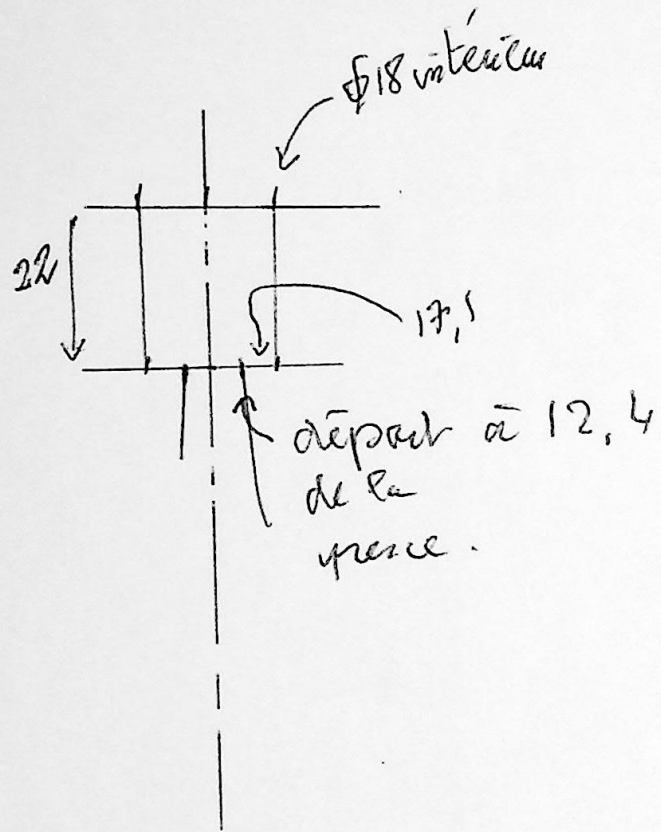 ϕ18 intérieur
22
17,5
départ à 12,4
de la
perce.